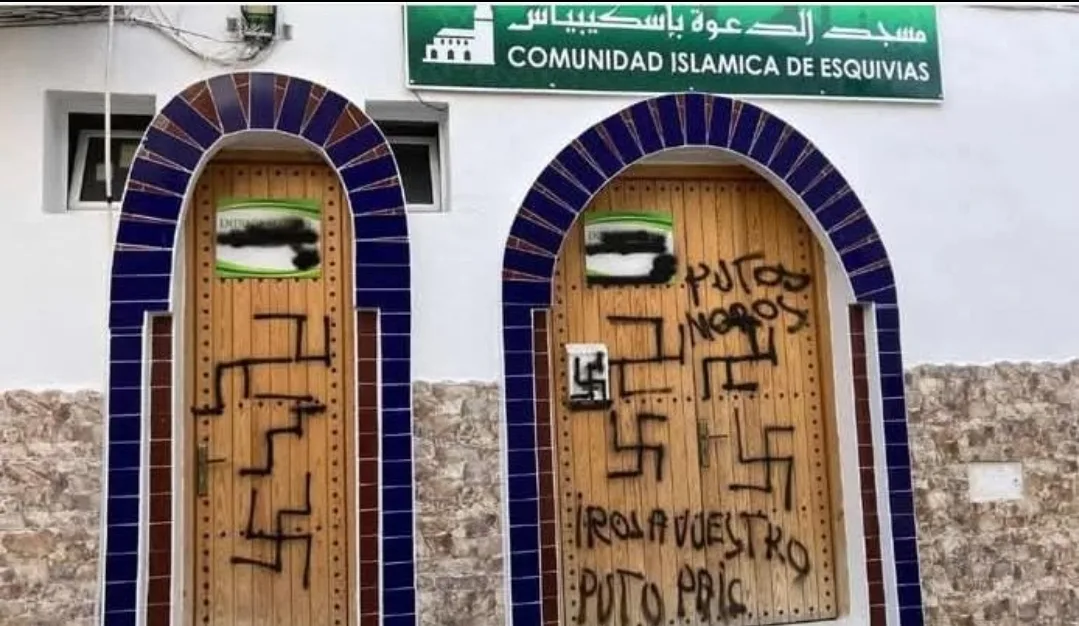 مسجد الدعوة بإسكيبياس
COMUNIDAD ISLAMICA DE ESQUIVIAS
PUTOS
MOROS
IROS A VUESTRO
PUTO PAIS